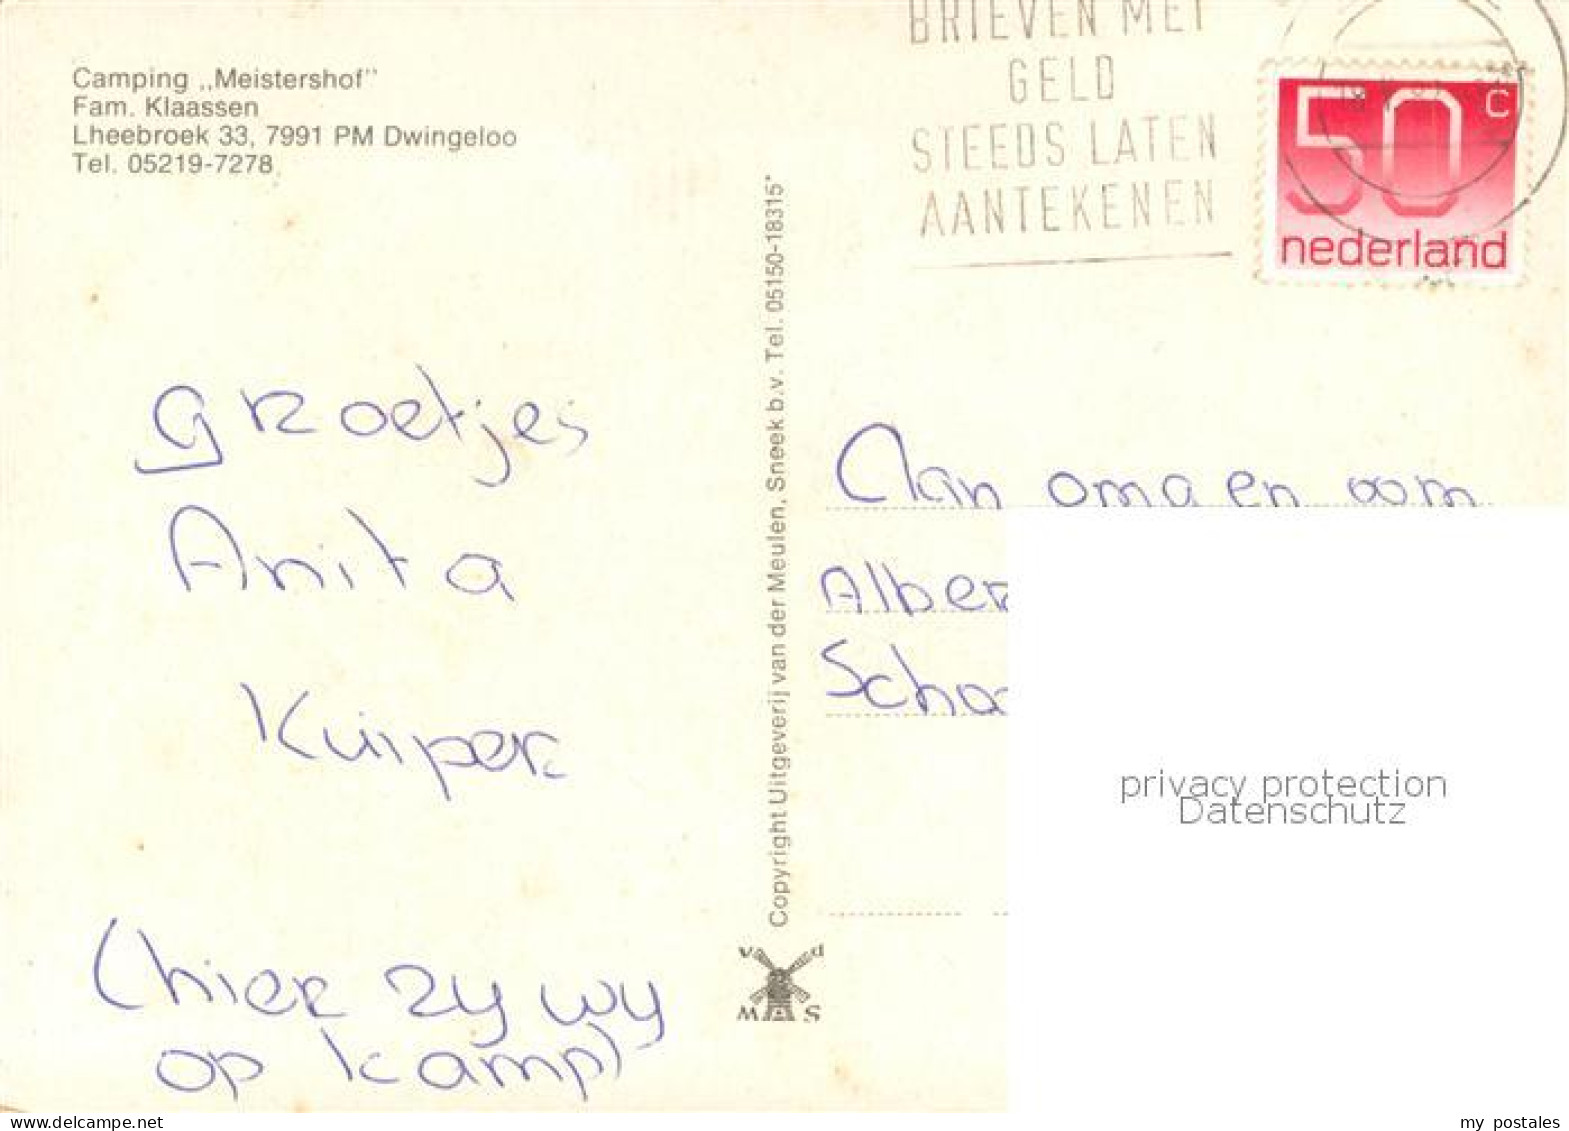 Camping „Meistershof"
Fam. Klaassen
Lheebroek 33, 7991 PM Dwingeloo
Tel. 05219-7278
BRIEVEN MET
GELD
STEEDS LATEN
AANTEKENEN
50 c
nederland
Groetjes
Anita
Kuiper
(hier zy wy
op kamp)
Copyright Uitgeverij van der Meulen, Sneek b.v. Tel. 05150-18315*
v d
M S
Aan oma en oom
Alber
Scha
privacy protection
Datenschutz
www.delcampe.net
my_postales